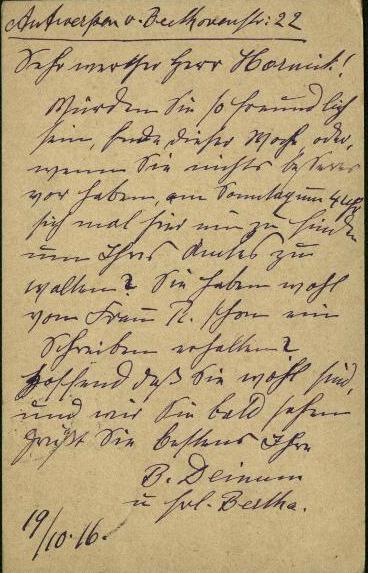 Antwerpen v. Beethovenstr: 22
Sehr werther Herr Hornick!
Würden Sie so freundlich
sein, Ende dieser Woche, oder,
wenn Sie nichts besseres
vor haben, am Sonntag um 4 Uhr
sich mal hier zu
um Ihres Amtes zu
walten? Sie haben wohl
von Frau R. schon ein
Schreiben erhalten?
Hoffend daß Sie wohl sind,
und wir Sie bald sehen
grüßt Sie bestens Ihre
B.
u frl. Bertha.
19/10.16.